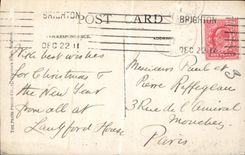 BRIGHTON
POST CARD
BRIGHTON
DEC 22 11
DEC 22 11
With best wishes
for Christmas &
the New Year
from all at
Langford House
Messieurs Paul et
Pierre Raffegeau
3 Rue de l'Amiral
Mouchez
Paris